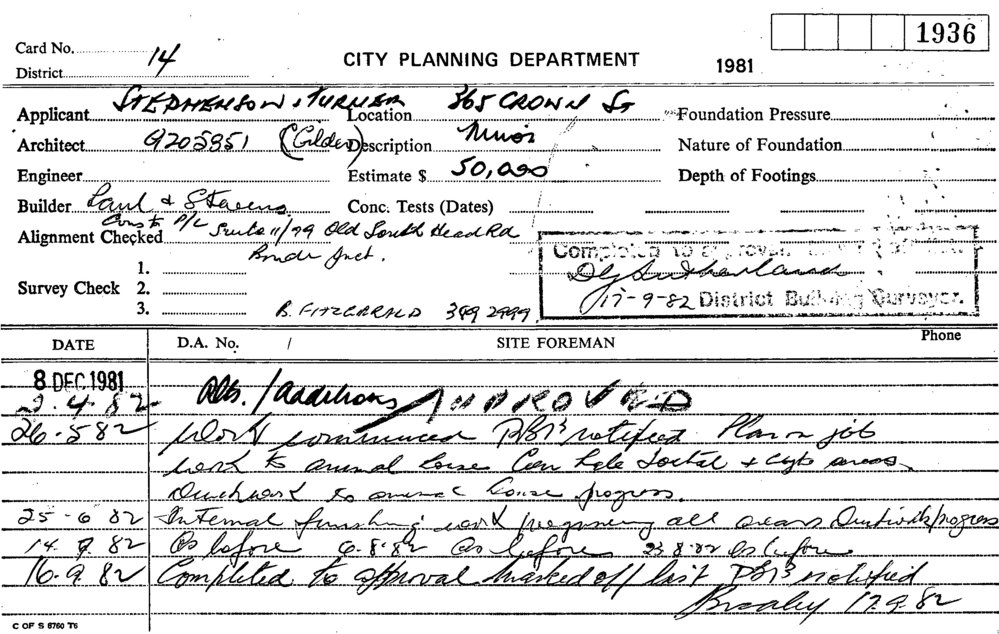 1936
Card No.
District 14
CITY PLANNING DEPARTMENT
1981
Applicant STEPHENSON & TURNER Location 365 CROWN St Foundation Pressure
Architect 9205951 (Gilder) Description Minor Nature of Foundation
Engineer Estimate $ 50,000 Depth of Footings
Builder Paul & Stevens Conc. Tests (Dates)
Const P/L Suite 11/99 Old South Head Rd
Alignment Checked
Bondi Junct.
Completed to approval
1.
Survey Check 2.
17-9-82 District Building Surveyor.
3. B. FITZGERALD 389 2999
DATE D.A. No. / SITE FOREMAN Phone
8 DEC 1981
2.4.82 Alts. / additions APPROVED
26.5.82 Work commenced notified Plan on job
work to animal house areas
Ductwork to animal house progress.
25.6.82 Internal finishing work progressing all areas Ductwork progress
14. 82 As before 6.8.82 As before 23.8.82 As before
16.9.82 Completed to approval marked off list notified
17.9.82
C OF S 6760 T6